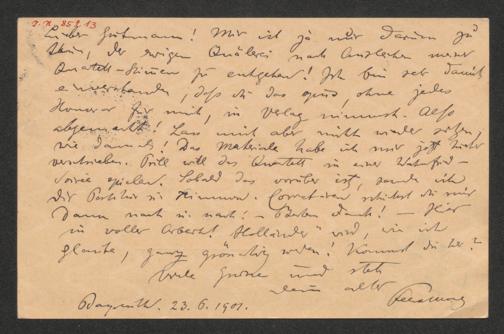 I. N. 85213
Lieber Gutmann! Mir ist ja nur darum zu
thun, der ewigen Quälerei nach Ausleihen meiner
Quartett-Stimmen zu entgehen! Ich bin sehr damit
einverstanden, daß du das opus, ohne jedes
Honorar für mich, in Verlag nimmst. Also
abgemacht! Lass mich aber nicht wieder sitzen,
wie damals! Das Materiale habe ich mir jetzt
vertrieben. will das Quartett in einer Wahnfried-
Soirée spielen. Sobald das vorüber ist, sende ich
dir Partitur u. Stimmen. Correcturen schickst du mir
dann nach u. nach! – Besten Dank! – Hier
in voller Arbeit! "Holländer" wird, wie ich
glaube, ganz großartig werden! Kommst du her?
Viele Grüsse und stets
dein alter
Bayreuth. 23. 6. 1901.